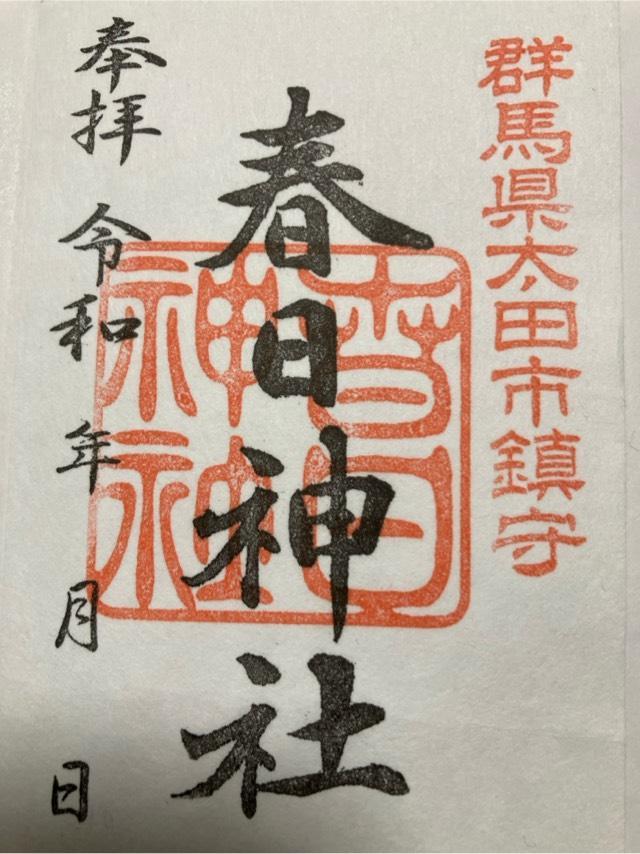 群馬県太田市鎮守
春日神社
奉拝 令和 年 月 日
春日
神社